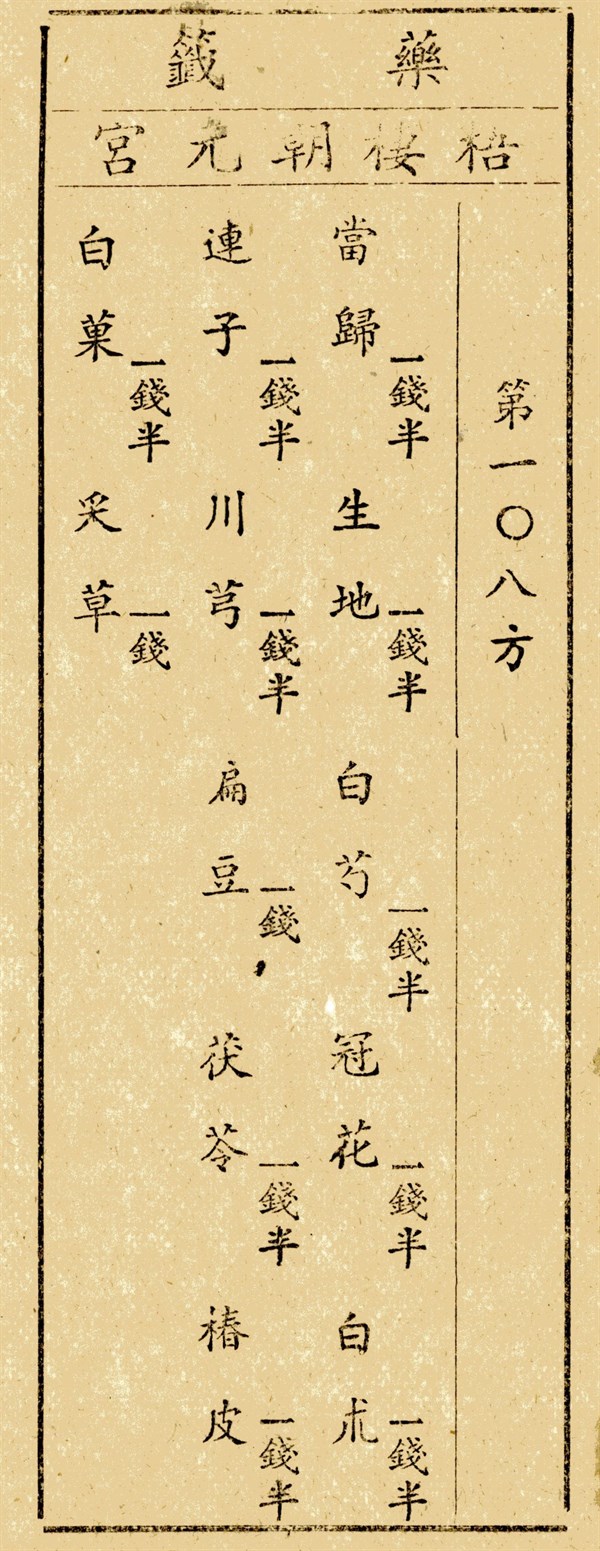 藥籤
梧棲朝元宮
第一〇八方
當歸一錢半 生地一錢半 白芍一錢半 冠花一錢半 白朮一錢半
連子一錢半 川芎一錢半 扁豆一錢 茯苓一錢半 椿皮一錢半
白菓一錢半 炙草一錢